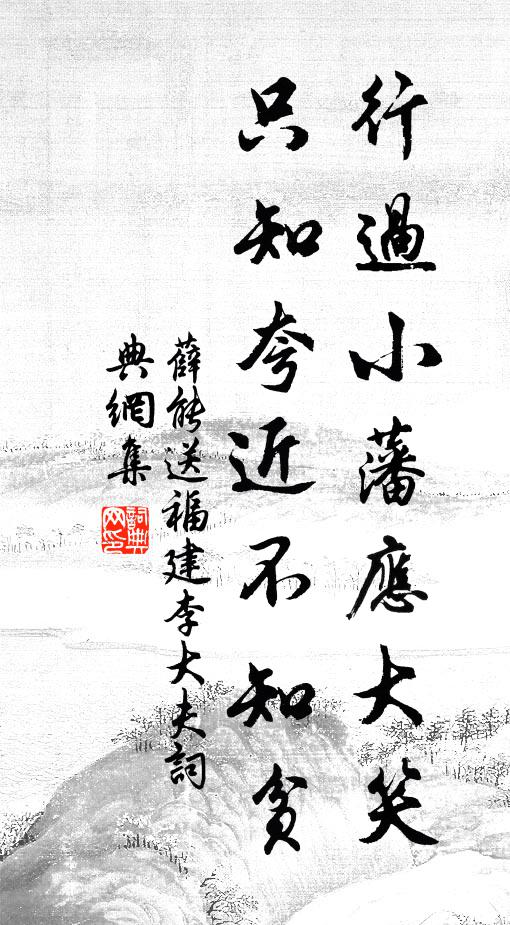 行過小藩應大笑
只知夸近不知貧
薛能送福建李大夫詞
典網集
詞典網印